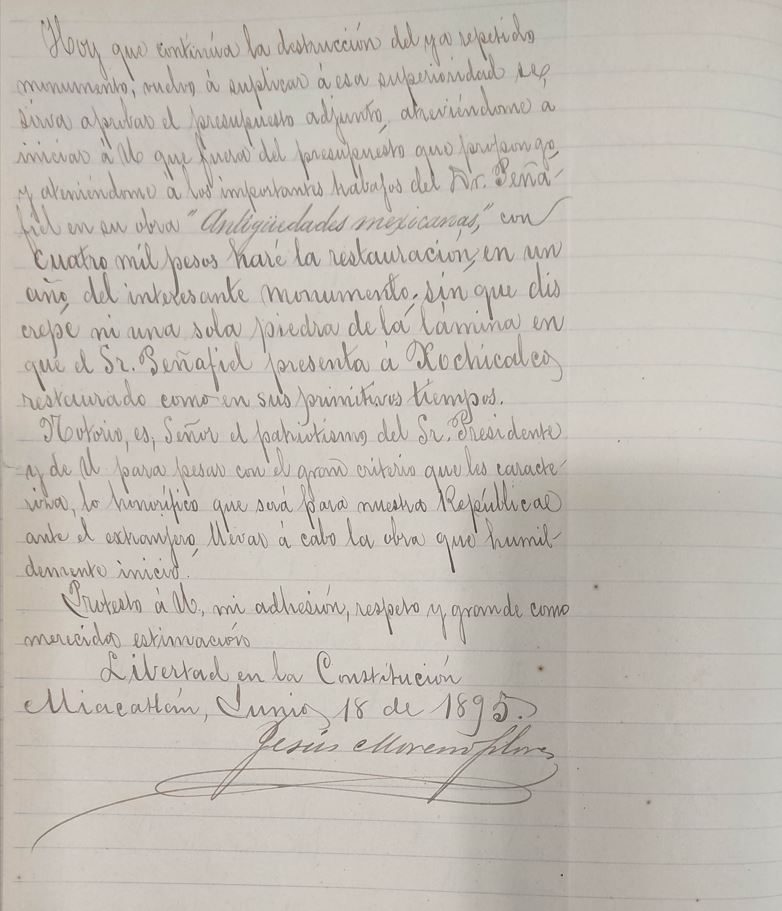 Hoy que continúa la destrucción del ya repetido
monumento, vuelvo á suplicar á esa superioridad se
sirva aprobar el presupuesto adjunto, atreviéndome á
iniciar á U que fuera del presupuesto que propongo,
y ateniéndome á los importantes trabajos del Dr. Peña-
fiel en su obra "Antigüedades mexicanas," con
cuatro mil pesos haré la restauración, en un
año, del interesante monumento, sin que dis
crepe ni una sola piedra de la lámina en
que el Sr. Peñafiel presenta á Xochicalco,
restaurado como en sus primitivos tiempos.
Notorio, es, Señor el patriotismo del Sr. Presidente
y de U para pesar con el gran criterio que les caracte-
riza, lo honorífico que será para nuestra República
ante el extranjero, llevar á cabo la obra que humil-
demente inicio.
Protesto á U, mi adhesión, respeto y grande como
merecida estimación
Libertad en la Constitución
Miacatlán, Junio 18 de 1895.
Jesús Moreno Flores